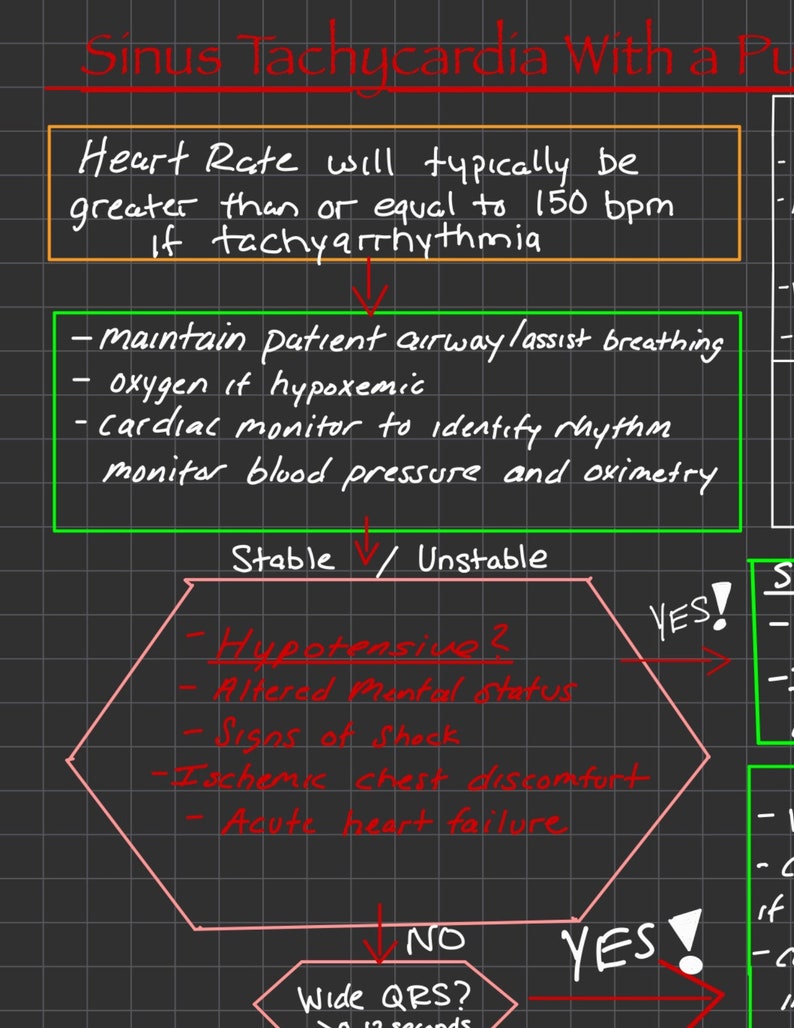 Sinus Tachycardia With a
Heart Rate will typically be
greater than or equal to 150 bpm
if tachyarrhythmia
- maintain patient airway/assist breathing
- oxygen if hypoxemic
- cardiac monitor to identify rhythm
monitor blood pressure and oximetry
Stable / Unstable
YES!
- Hypotensive?
- Altered Mental status
- Signs of shock
- Ischemic chest discomfort
- Acute heart failure
if
NO
YES!
Wide QRS?